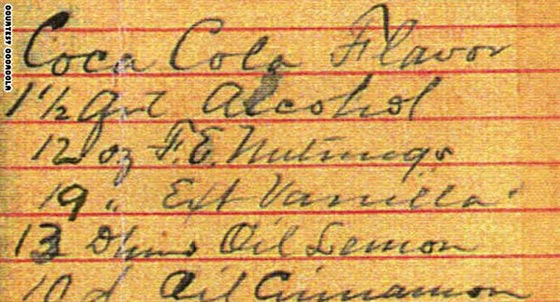 Coca Cola Flavor
1½ qrt Alcohol
12 oz F.E. Nutmegs
19 " Ext Vanilla
13 Oil Lemon
10 Oil Cinnamon